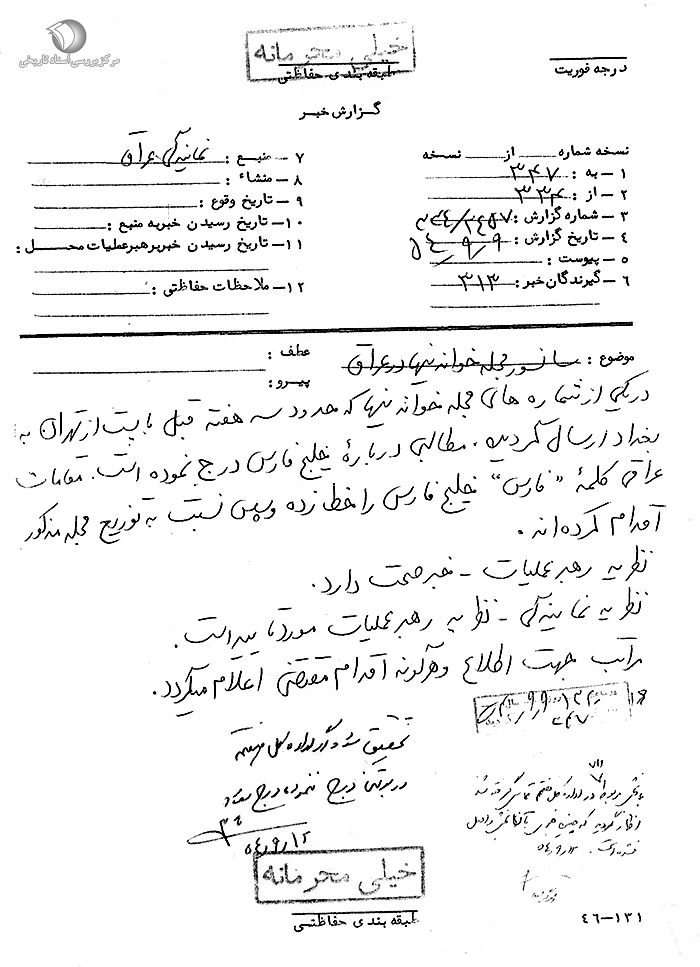 مرکز بررسی اسناد تاریخی
خیلی محرمانه
طبقه بندی حفاظتی
درجه فوریت
گزارش خبر
نسخه شماره از نسخه
۱ – به : ۳۴۷
۲ – از : ۳۳۴
۳ – شماره گزارش :
۴ – تاریخ گزارش : ۵۴/۹/۹
۵ – پیوست :
۶ – گیرندگان خبر : ۳۱۳
۷ – منبع : نمایندگی عراق
۸ – منشاء :
۹ – تاریخ وقوع :
۱۰ – تاریخ رسیدن خبربه منبع :
۱۱ – تاریخ رسیدن خبربرهبرعملیات محل :
۱۲ – ملاحظات حفاظتی :
موضوع : سانسور مجله خواندنیها در عراق
عطف :
پیرو :
در یکی از شماره های مجله خواندنیها که حدود سه هفته قبل با پست از تهران به
بغداد ارسال گردیده، مطالبی درباره خلیج فارس درج نموده است. مقامات
عراقی کلمه "فارس" خلیج فارس را خط زده و سپس نسبت به توزیع مجله مذکور
اقدام کرده اند.
نظریه رهبر عملیات – خبر صحت دارد.
نظریه نمایندگی – نظریه رهبر عملیات مورد تایید است.
مراتب جهت اطلاع و هرگونه اقدام مقتضی اعلام میگردد.
تحقیق شود اگر اداره کل هفتم
در بولتن درج ننموده درج شود
۵۴/۹/۱۲
با بخش مربوطه در اداره کل هفتم تماس گرفته شد
اظهار گردید که چنین خبری با آن بخش واصل
نشده است.
خیلی محرمانه
طبقه بندی حفاظتی
۴۶–۱۳۱